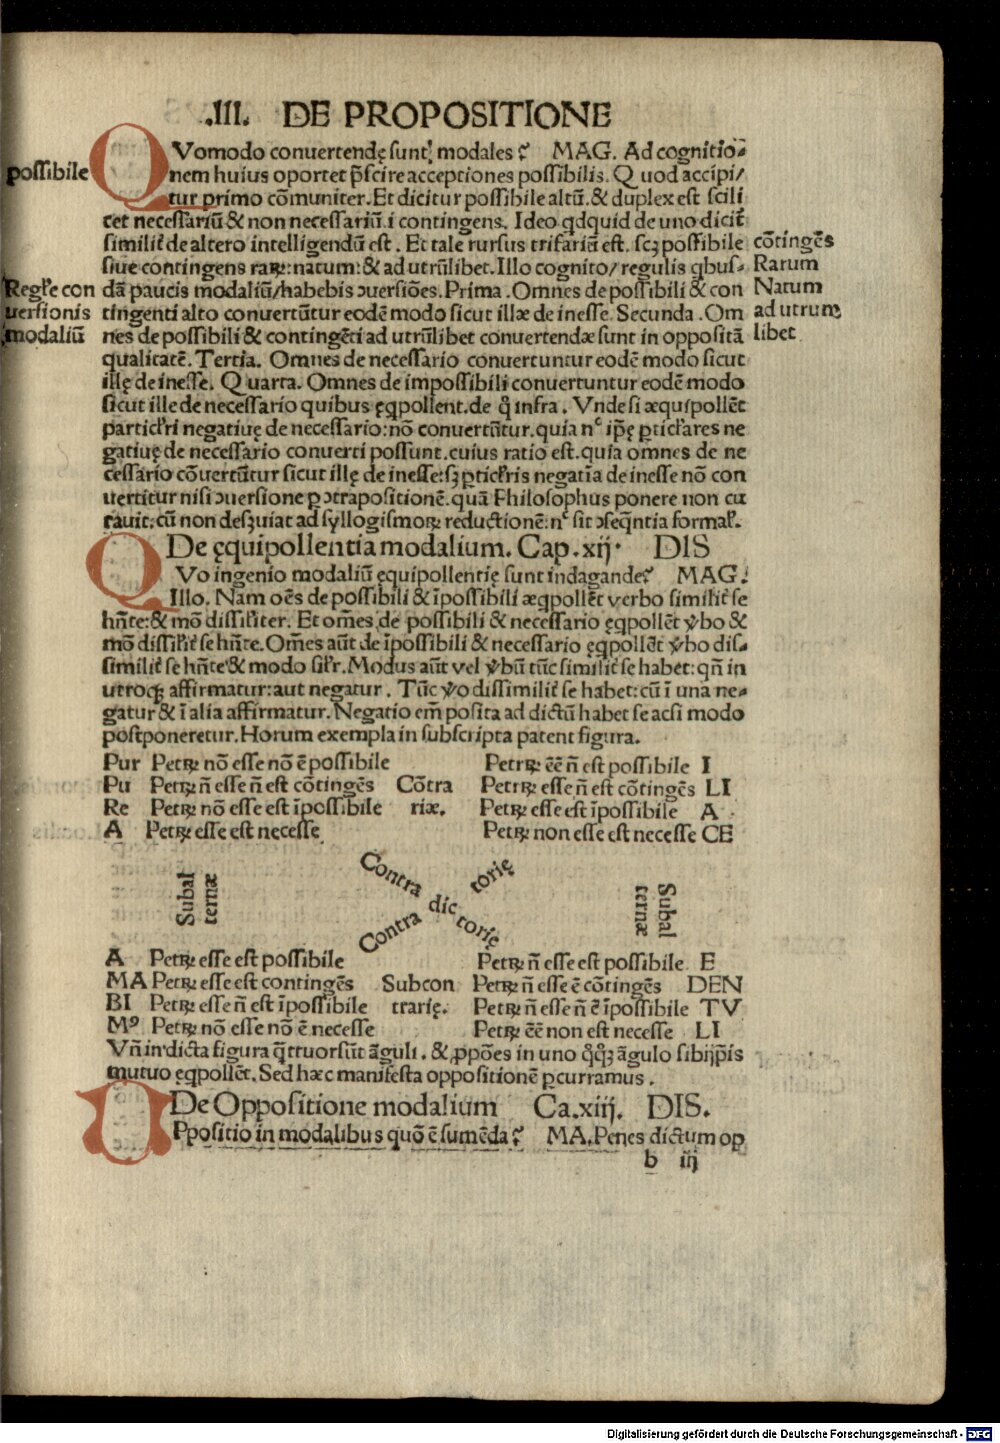 .III. DE PROPOSITIONE
QVomodo conuertendę sunt modales? MAG. Ad cognitio-
possibile
nem huius oportet p̄scire acceptiones possibilis. Quod accipi/
tur primo cōmuniter. Et dicitur possibile altū. & duplex est scili
cet necessariū & non necessariū. i contingens. Ideo qdquid de uno dicit̄
similit̄ de altero intelligendū est. Et tale rursus trifariā est. scꝫ possibile
cōtingēs
siue contingens raꝝ: natum: & ad utrūlibet. Illo cognito/ regulis qbus-
Rarum
Regłe con
dā paucis modaliū/ habebis ɔuersiōes. Prima. Omnes de possibili & con
Natum
uersionis
tingenti alto conuertūtur eodē modo sicut illæ de inesse. Secunda. Om
ad utrum
modaliū
nes de possibili & contingēti ad utrūlibet conuertendæ sunt in oppositā
libet
qualitatē. Tertia. Omnes de necessario conuertuntur eodē modo sicut
illę de inesse. Quarta. Omnes de impossibili conuertuntur eodē modo
sicut ille de necessario quibus ęqpollent. de q̄ infra. Vnde si æquipollēt
particłri negatiuę de necessario: nō conuertūtur. quia nᶜ ip̄ę pticłares ne
gatiuę de necessario conuerti possunt. cuius ratio est. quia omnes de ne
cessario cōuertūtur sicut illę de inesse: sꝫ pticłris negatīa de inesse nō con
uertitur nisi ɔuersione p ɔtrapositionē. quā Philosophus ponere non cu
rauit. cū non desꝫuiat ad syllogismoꝝ reductionē: nᶜ sit ɔseq̄ntia formał.
De ęquipollentia modalium. Cap. xij. DIS
QVo ingenio modaliū ęquipollentię sunt indagande? MAG.
Illo. Nam oēs de possibili & īpossibili æqpollēt verbo similit̄ se
hn̄te: & mō dissiłiter. Et om̄es de possibili & necessario ęqpollēt v̄bo &
mō dissiłit̄ se hn̄te. Om̄es aūt de īpossibili & necessario ęqpollēt v̄bo dis-
similit̄ se hn̄te & modo siłr. Modus aūt vel v̄bū tūc similit̄ se habet: qn̄ in
utroqꝫ affirmatur: aut negatur. Tūc v̄o dissimilit̄ se habet: cū ī una ne-
gatur & ī alia affirmatur. Negatio em̄ posita ad dictū habet se acsi modo
postponeretur. Horum exempla in subscripta patent figura.
Pur Petrꝝ nō esse nō ē possibile Petrꝝ ēē n̄ est possibile I
Pu Petrꝝ n̄ esse n̄ est cōtingēs Cōtra Petrꝝ esse n̄ est cōtingēs LI
Re Petrꝝ nō esse est īpossibile riæ. Petrꝝ esse est īpossibile A
A Petrꝝ esse est necesse Petrꝝ non esse est necesse CE
Subal
ternæ
Contra
dic
torię
Contra
torię
Subal
ternæ
A Petrꝝ esse est possibile Petrꝝ n̄ esse est possibile E
MA Petrꝝ esse est contingēs Subcon Petrꝝ n̄ esse ē cōtingēs DEN
BI Petrꝝ esse n̄ est īpossibile trarię. Petrꝝ n̄ esse n̄ ē īpossibile TV
Mꝰ Petrꝝ nō esse nō ē necesse Petrꝝ ēē non est necesse LI
Vn̄ in dicta figura q̄ttuor sūt āguli. & ꝓpōes in uno q̄qꝫ āgulo sibijp̄is
mutuo ęqpollēt. Sed hæc manifesta oppositionē pcurramus.
De Oppositione modalium Ca. xiij. DIS.
OPpositio in modalibus quō ē sumēda? MA. Penes dictum op
b iij
Digitalisierung gefördert durch die Deutsche Forschungsgemeinschaft - DFG